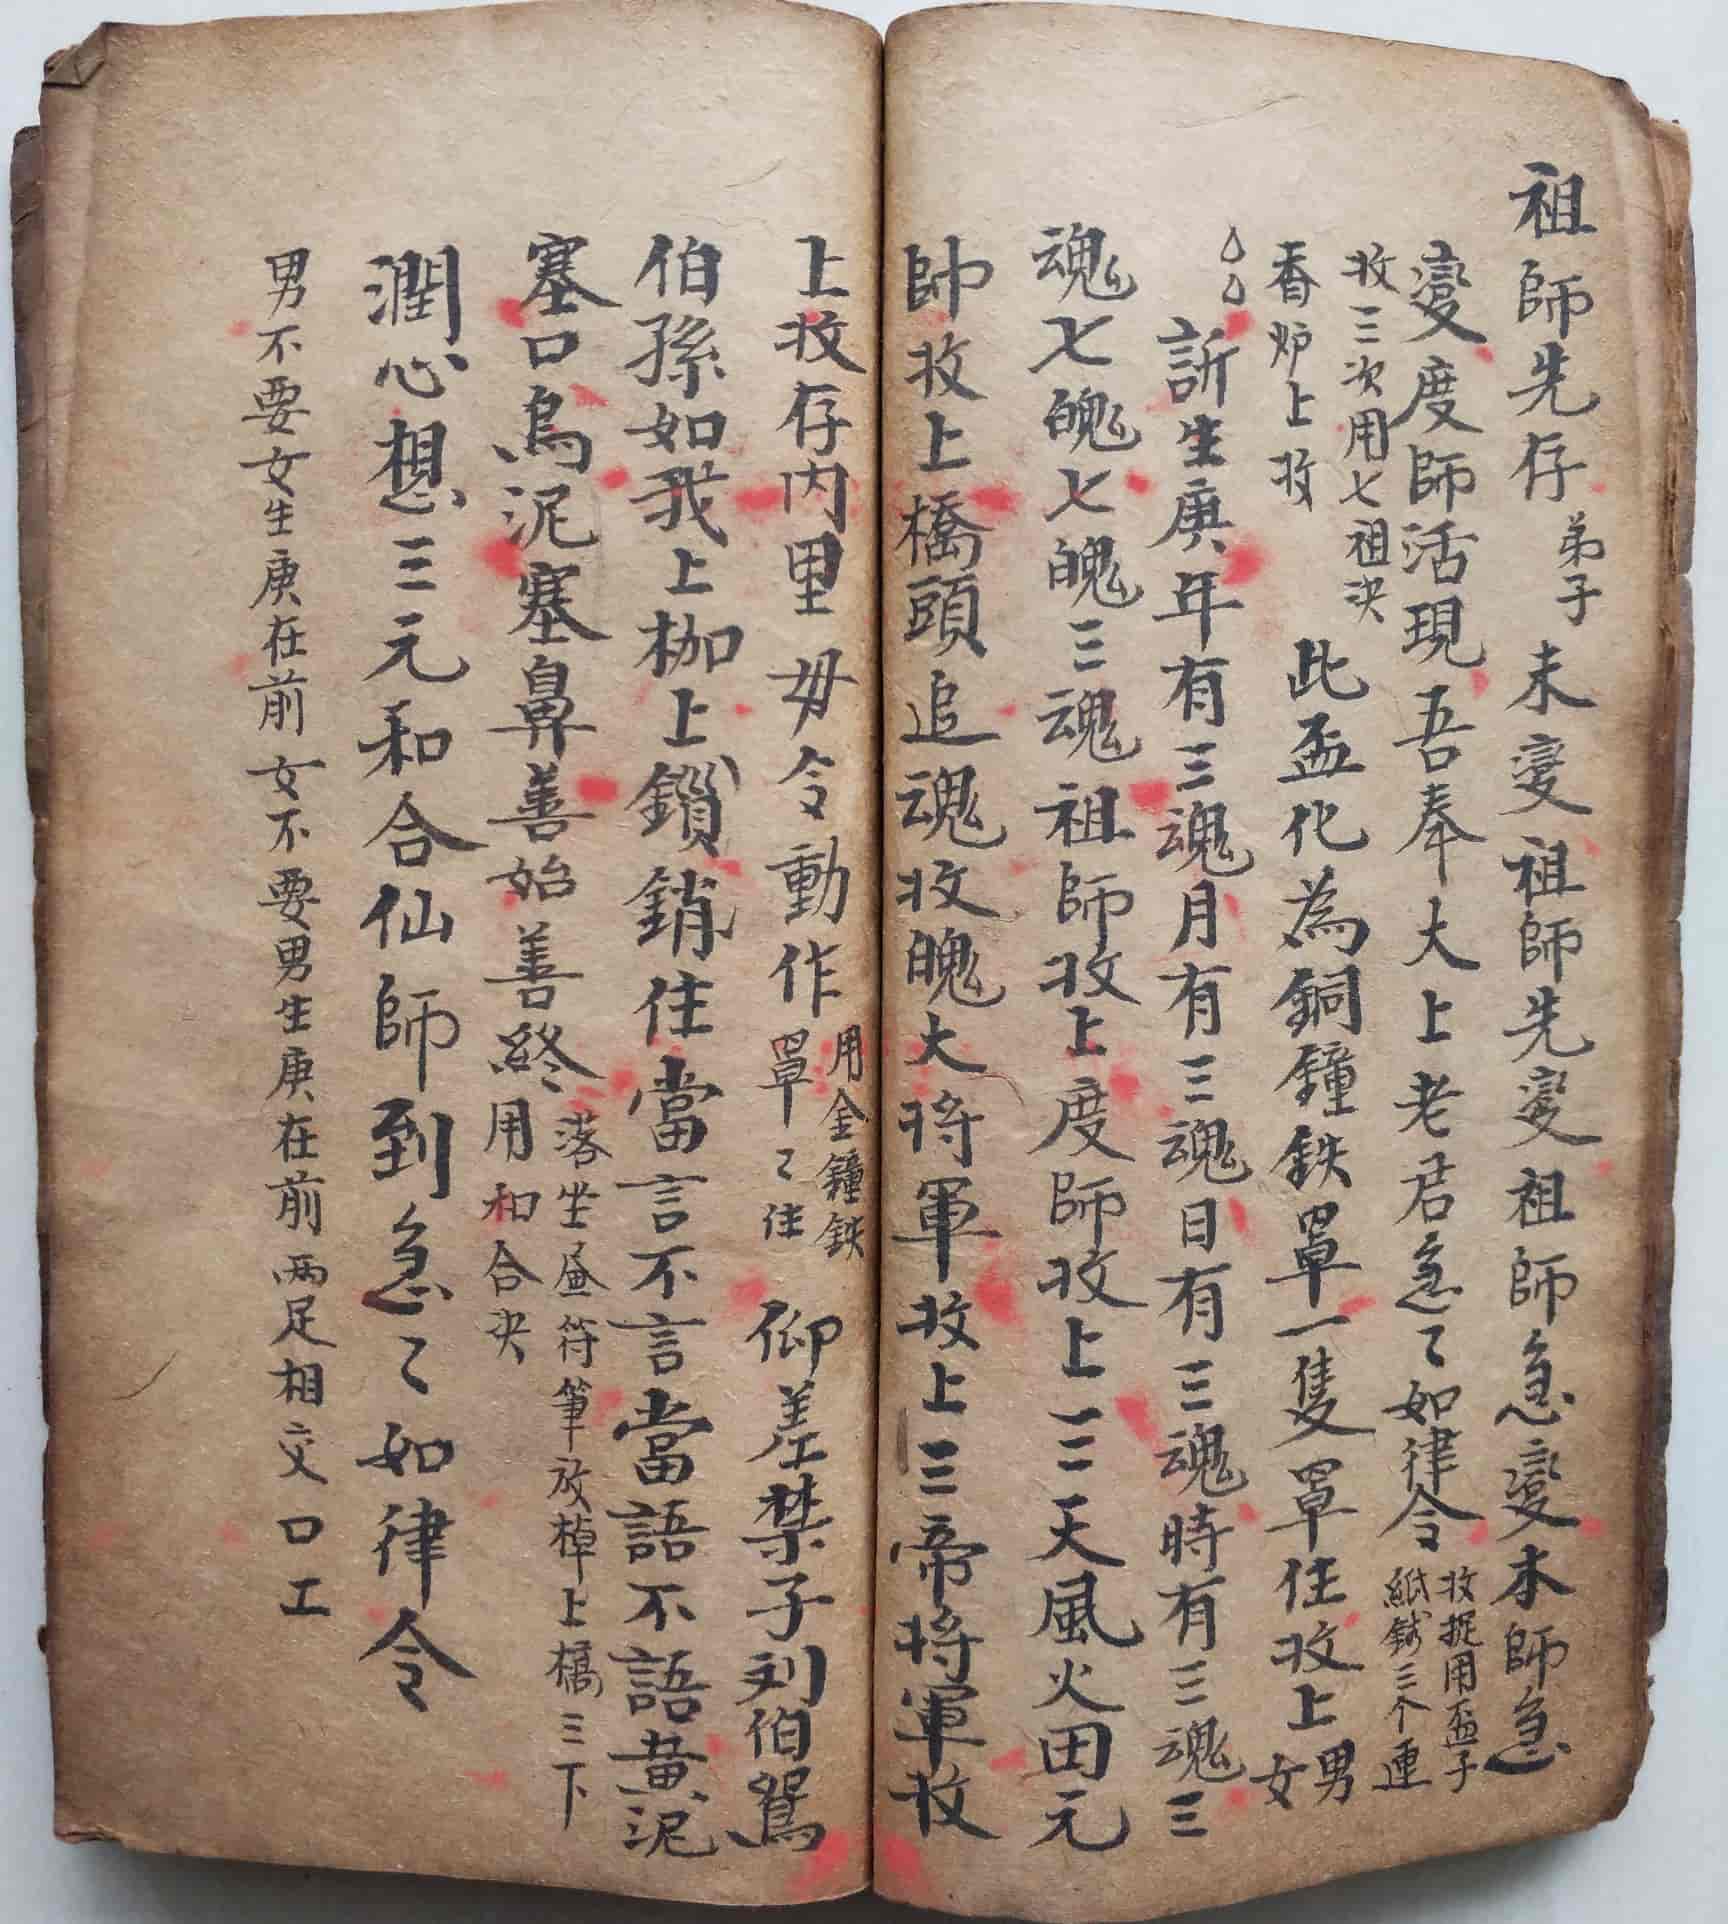 祖師先存弟子未变祖師先变祖師急变本師急
变度師活現吾奉大上老君急〻如律令收捉用盃子
紙錢三个連
收三次用七祖决
香炉上收
此盃化為銅鐘鉄罩一隻罩住收上男女
訴生庚年有三魂月有三魂日有三魂時有三魂三
魂七魄七魄三魂祖師收上度師收上三天風火田元
帥收上橋頭追魂收魄大将軍收上三帝将軍收
上收存内里毋令動作用金鐘鉄
罩〻住
仰差禁子刘伯鴛
伯孫如我上枷上鎖銷住當言不言當語不語黄泥
塞口烏泥塞鼻善始善終落坐 符筆放棹上橋三下
用和合决
潤心想三元和合仙師到急〻如律令
男不要女生庚在前女不要男生庚在前两足相交口工